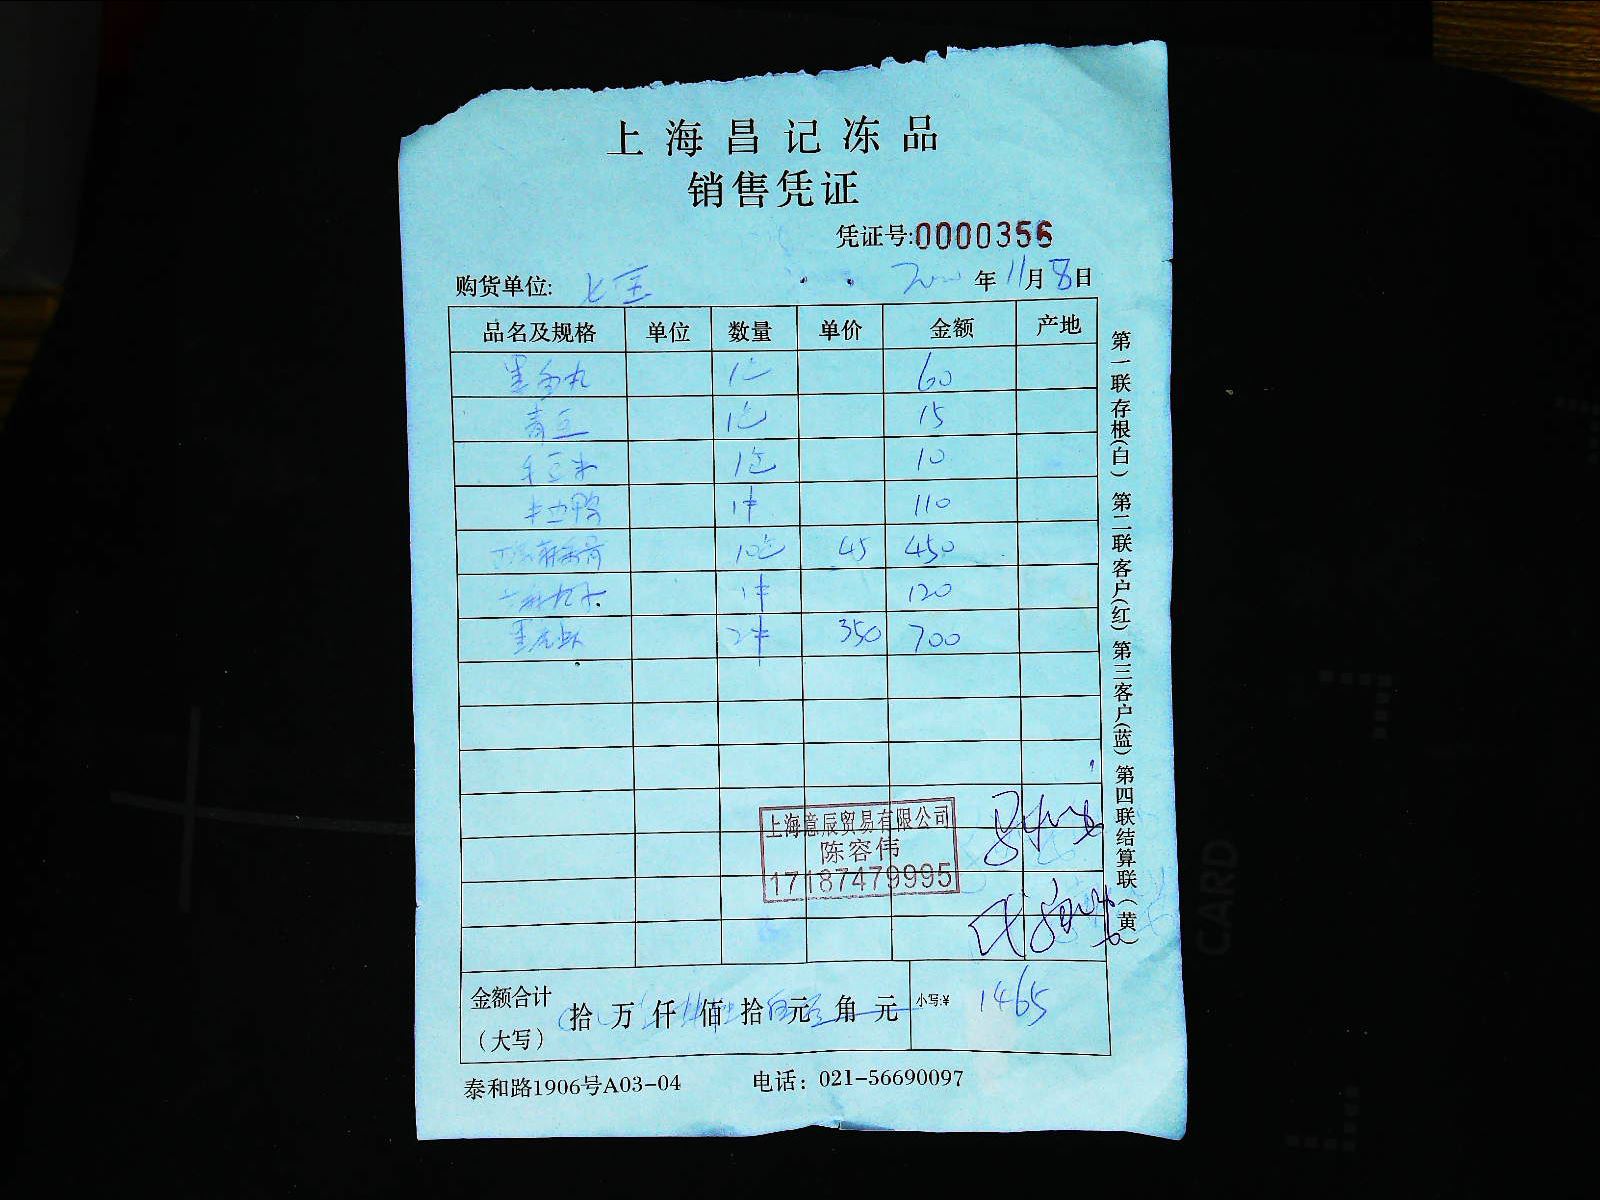 上海昌记冻品
销售凭证
凭证号:0000356
购货单位: 七宝 年11月8日
品名及规格 单位 数量 单价 金额 产地
1包 60
青豆 1包 15
毛豆米 1包 10
半边鸭 1件 110
10包 45 450
1件 120
黑虎虾 2件 350 700
上海意辰贸易有限公司
陈容伟
17187479995
金额合计
(大写)
拾 万 仟 佰 拾 元 角 元 小写:¥ 1465
泰和路1906号A03-04 电话: 021-56690097
第一联存根(白) 第二联客户(红) 第三客户(蓝) 第四联结算联(黄)